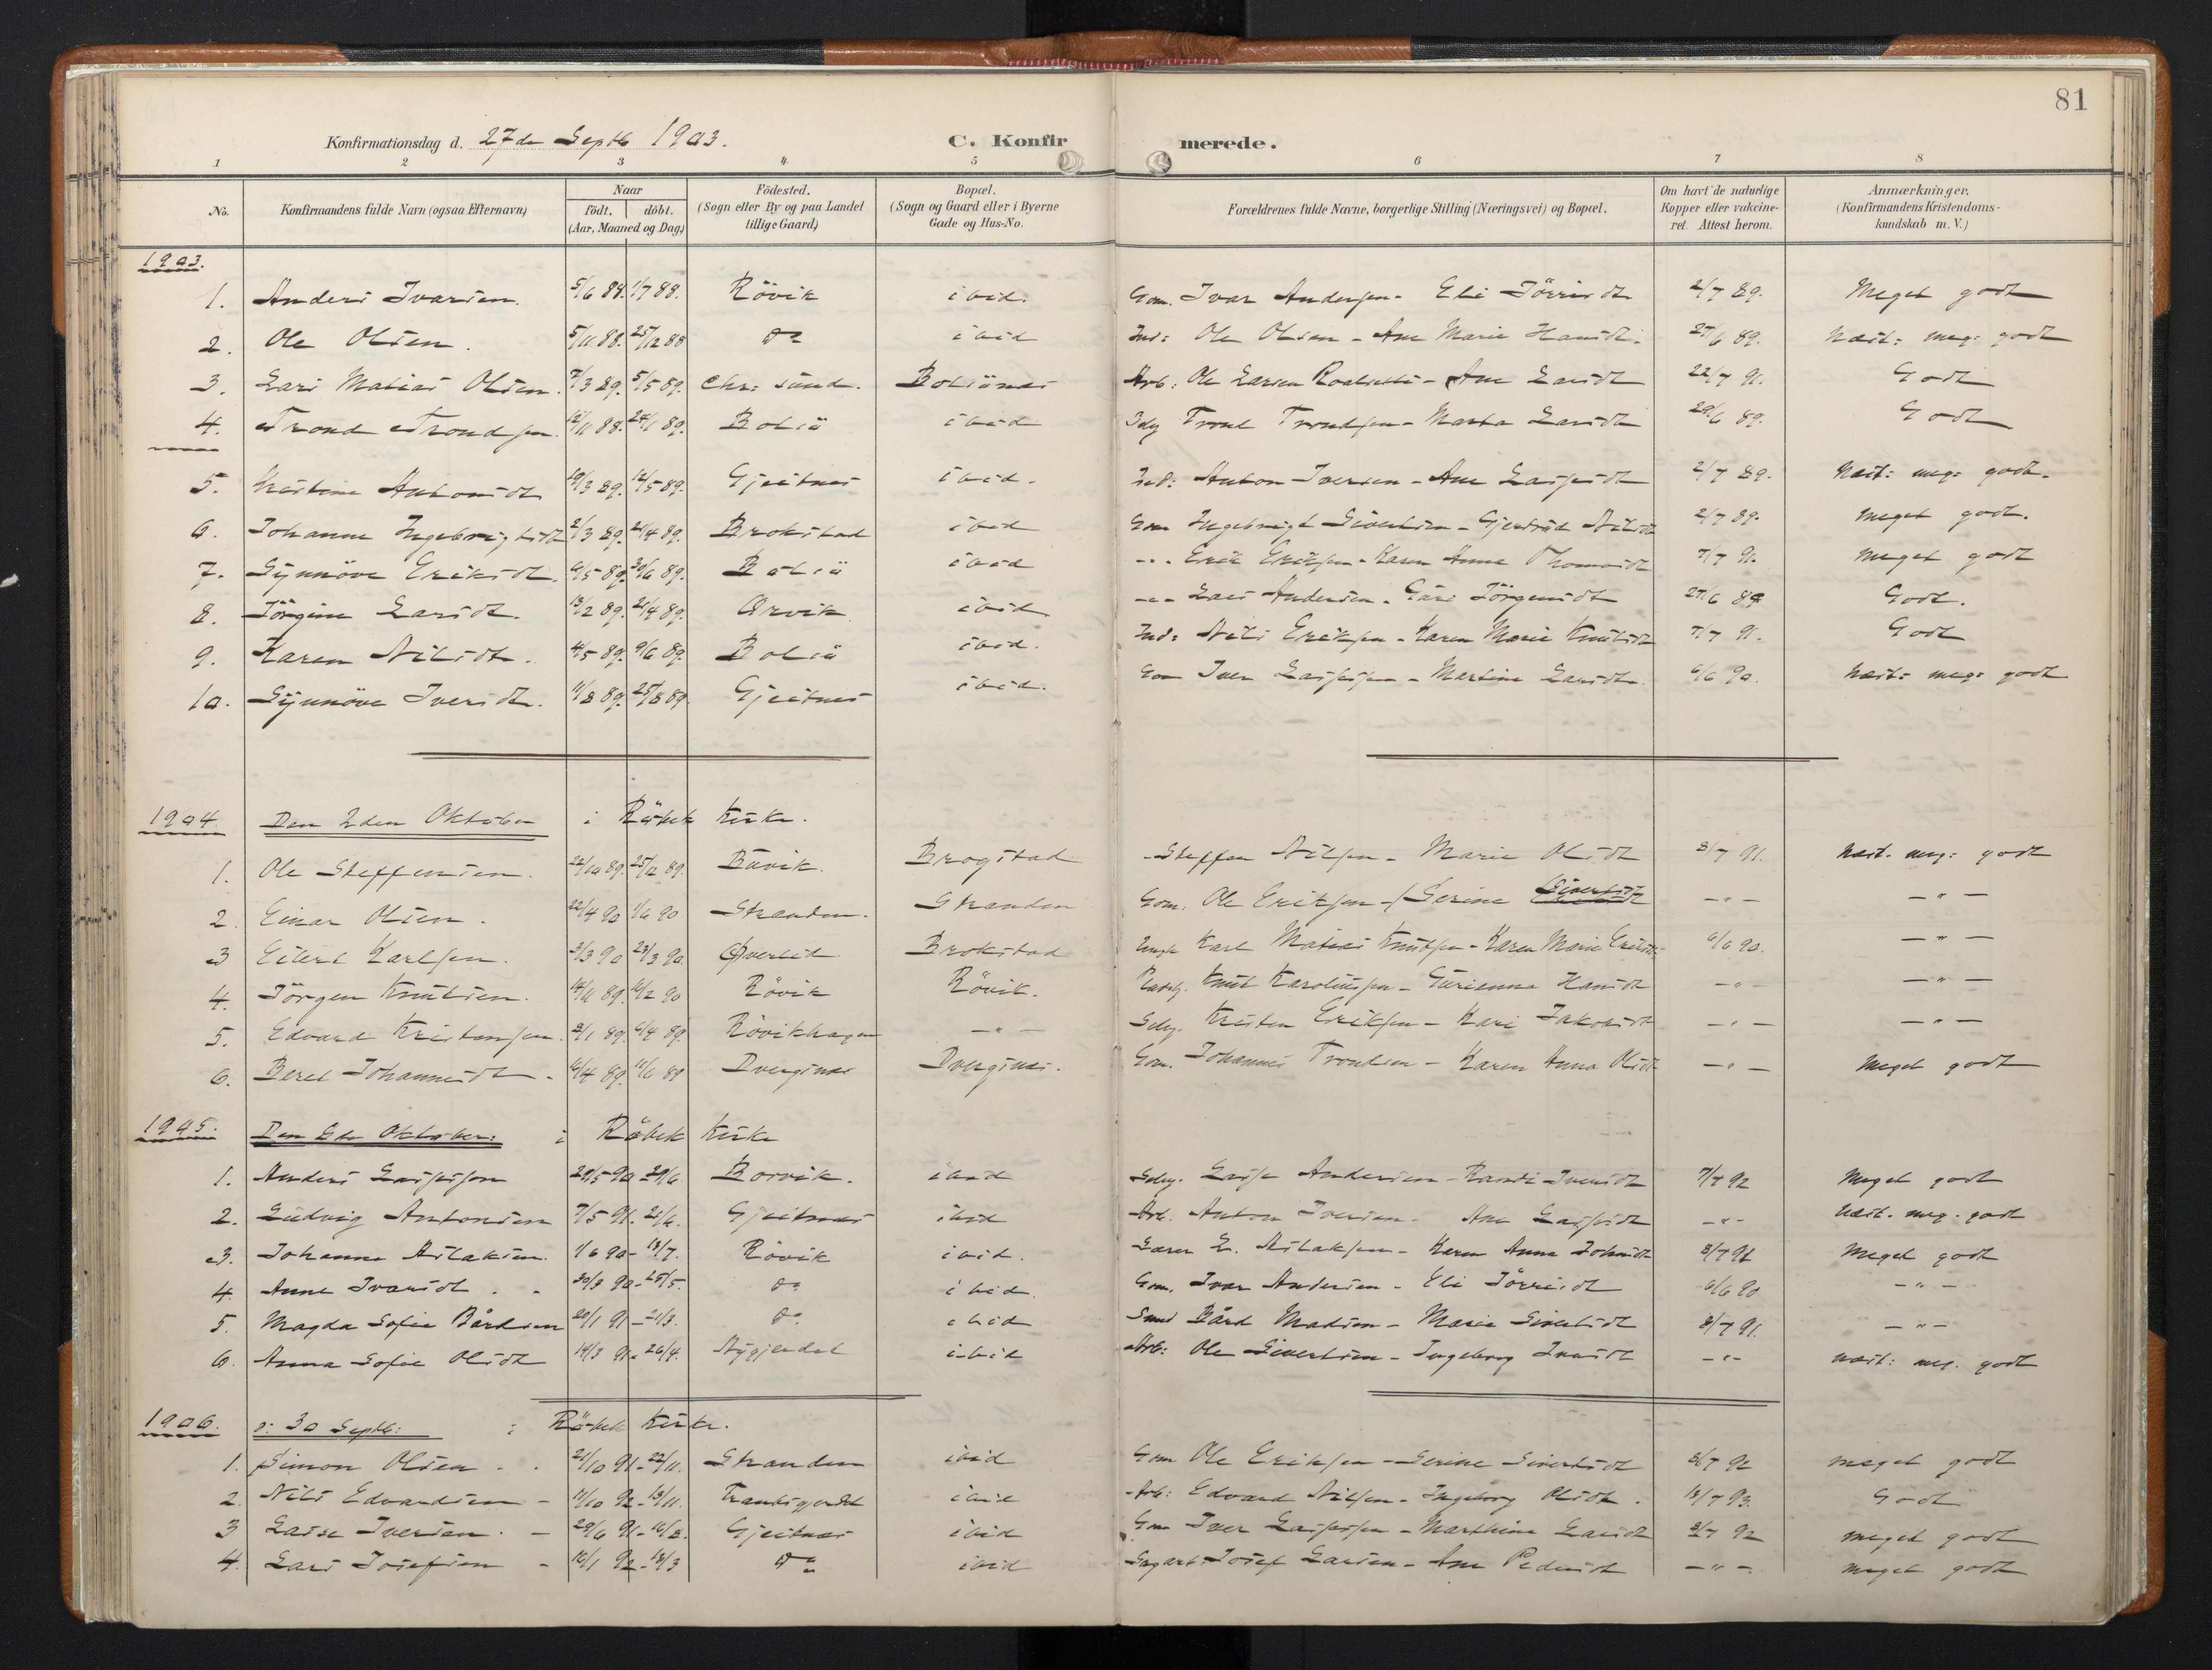 81
Konfirmationsdag d. 27de Septb 1903.
C. Konfirmerede.
1 2 3 4 5 6 7 8
No. Konfirmandens fulde Navn (ogsaa Efternavn) Naar födt. döbt. (Aar, Maaned og Dag) Födested. (Sogn eller By og paa Landet tillige Gaard) Bopæl. (Sogn og Gaard eller i Byerne Gade og Hus-No. Forældrenes fulde Navne, borgerlige Stilling (Næringsvei) og Bopæl. Om havt de naturlige Kopper eller vakcineret. Attest herom. Anmærkninger. (Konfirmandens Kristendomskundskab m. V.)
1903.
1. Anders Ivarsen. 5/6 88. 1/7 88. Rövik ibid. Gm. Ivar Andersen - Eli Törrisdt 2/7 89. Meget godt
2. Ole Olsen. 5/11 88. 25/12 88 do ibid Ind: Ole Olsen - Ane Marie Hansdt. 27/6 89. Næst: meg: godt
3. Lars Matias Olsen. 7/3 89. 5/5 89. Chr: sund. Bolsünes Arb: Ole Larsen - Ane Larsdt 22/7 91. Godt
4. Trond Trondsen. 12/11 88. 24/1 89. Bolsö ibid Trond Trondsen - Marta Larsdt 29/6 89. Godt
5. Kristine Antonsdt 19/3 89. 12/5 89. Gjeitnes ibid. Ind: Anton Iversen - Ane Lassesdt 2/7 89. Næst: meg: godt.
6. Johanne Ingebrigtsdt 2/3 89. 21/4 89. Brokstad ibid Gm Ingebrigt Sivertsen - Gjertrud Nilsdt 2/7 89. Meget godt.
7. Synnöve Eriksdt. 6/5 89. 30/6 89. Bolsö ibid -"- Erik Eriksen - Karen Anna Thomasdt 7/7 91. Meget godt
8. Jörgine Larsdt. 13/2 89. 21/4 89. Orvik ibid -"- Lars Andersen - Guri Jörgensdt 27/6 89 Godt.
9. Karen Nilsdt. 4/5 89. 9/6 89. Bolsö ibid. Ind: Nils Eriksen - Karen Marie Knutsdt 7/7 91. Godt
10. Synnöve Iversdt. 11/8 89. 25/8 89 Gjeitnes ibid. Gm Iver Lassesen - Martine Larsdt. 6/6 90. Næst: meg: godt
1904. Den 2den Oktober i Röbek Kirke.
1. Ole Steffensen. 22/10 89. 25/12 89. Bövik. Brogstad Steffen Nilsen - Marie Olsdt 3/7 91. Næst. meg: godt
2. Einar Olsen. 22/4 90 1/6 90 Stranden. Stranden Gm. Ole Eriksen - Serine Sivertsdt -"- -"-
3 Eilert Karlsen. 2/3 90 23/3 90. Øverlid Brokstad Karl Matias Knutsen - Karen Marie Eriksdt. 6/6 90. -"-
4. Jörgen Knutsen. 14/11 89. 16/2 90 Rövik Rövik. Knut Karolussen - Gurianna Hansdt -"- -"-
5. Edvard Kristensen. 2/1 89. 6/4 89. Rövikhagen -"- Selvj. Kristen Eriksen - Kari Jakobsdt -"- -"-
6. Beret Johannesdt. 16/4 89. 11/6 89 Dvergsnes Dvergsnes. Gm. Johannes Trondsen - Karen Anna Olsdt -"- Meget godt
1905. Den Oktober: i Röbek Kirke
1. Anders Lassesen 20/5 90 29/6 Borvik. ibid Selvj. Lasse Andersen - Randi Iversdt 7/7 92 Meget godt
2. Ludvig Antonsen 7/5 91. 21/6. Gjeitnes ibid Arb. Anton Iversen - Ane Lassesdt -"- Næst. meg. godt
3. Johanne Aslaksen. 1/6 90 - 13/7. Rövik ibid. Aslaksen - Karen Anna Johnsdt 8/7 91 Meget godt
4. Anne Ivarsdt. 30/3 90 - 25/5. do ibid. Gm. Ivar Andersen - Eli Törrisdt 6/6 90 -"-
5. Magda Sofie Bårdsen 20/1 91 - 21/3. do ibid Smed Bård Madsen - Marie Sivertsdt 8/7 91. -"-
6. Anna Sofie Olsdt 14/3 91 - 26/4. Nygjerdet ibid Arb: Ole Sivertsen - Ingeborg -"- Næst: meg. godt
1906. d: 30 Septb: i Röbek Kirke.
1. Simon Olsen. 21/10 91 - 22/11. Stranden ibid Gm Ole Eriksen - Serine Sivertsdt 8/7 92 meget godt
2. Nils Edvardsen - 11/10 92 - 13/11. ibid Arb: Edvard Nilsen - Ingeborg Olsdt. 13/7 93. Godt
3 Lasse Iversen. - 29/6 91 - 16/8. Gjeitnes ibid Gm Iver Lassesen - Marthine Larsdt 8/7 92 meget godt
4. Lars Josefsen - 10/1 92 - 13/3 do ibid Sagarb. Josef Larsen - Ane Pedersdt -"- meget godt